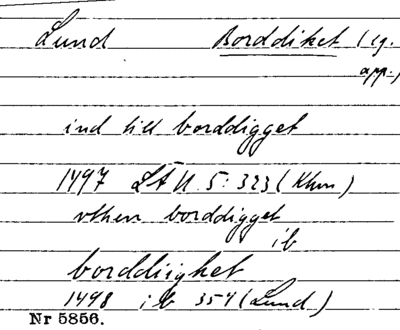 Lund Borddiket (eg. app.)
ind till borddigget
1497 LÄU. 5: 323 (Khvn)
vthen borddigget
ib
borddiigket
1498 ib 354 (Lund)
Nr 5856.